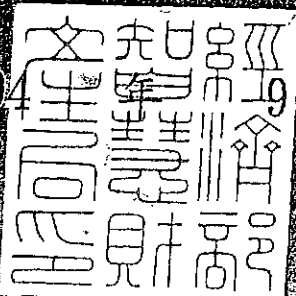 經濟部
智慧財
產局印
4 年 9